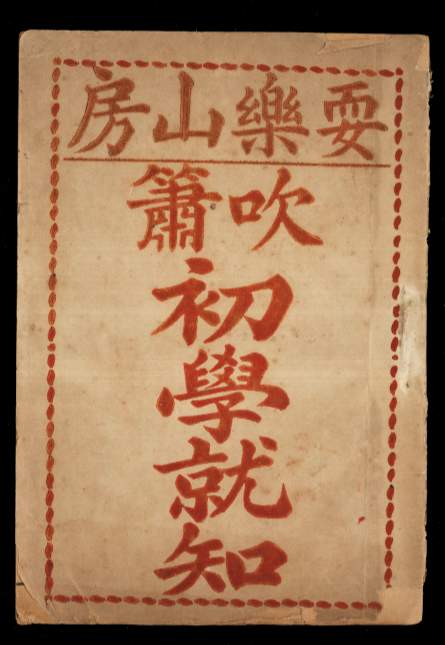 耍樂山房
吹簫
初學就知